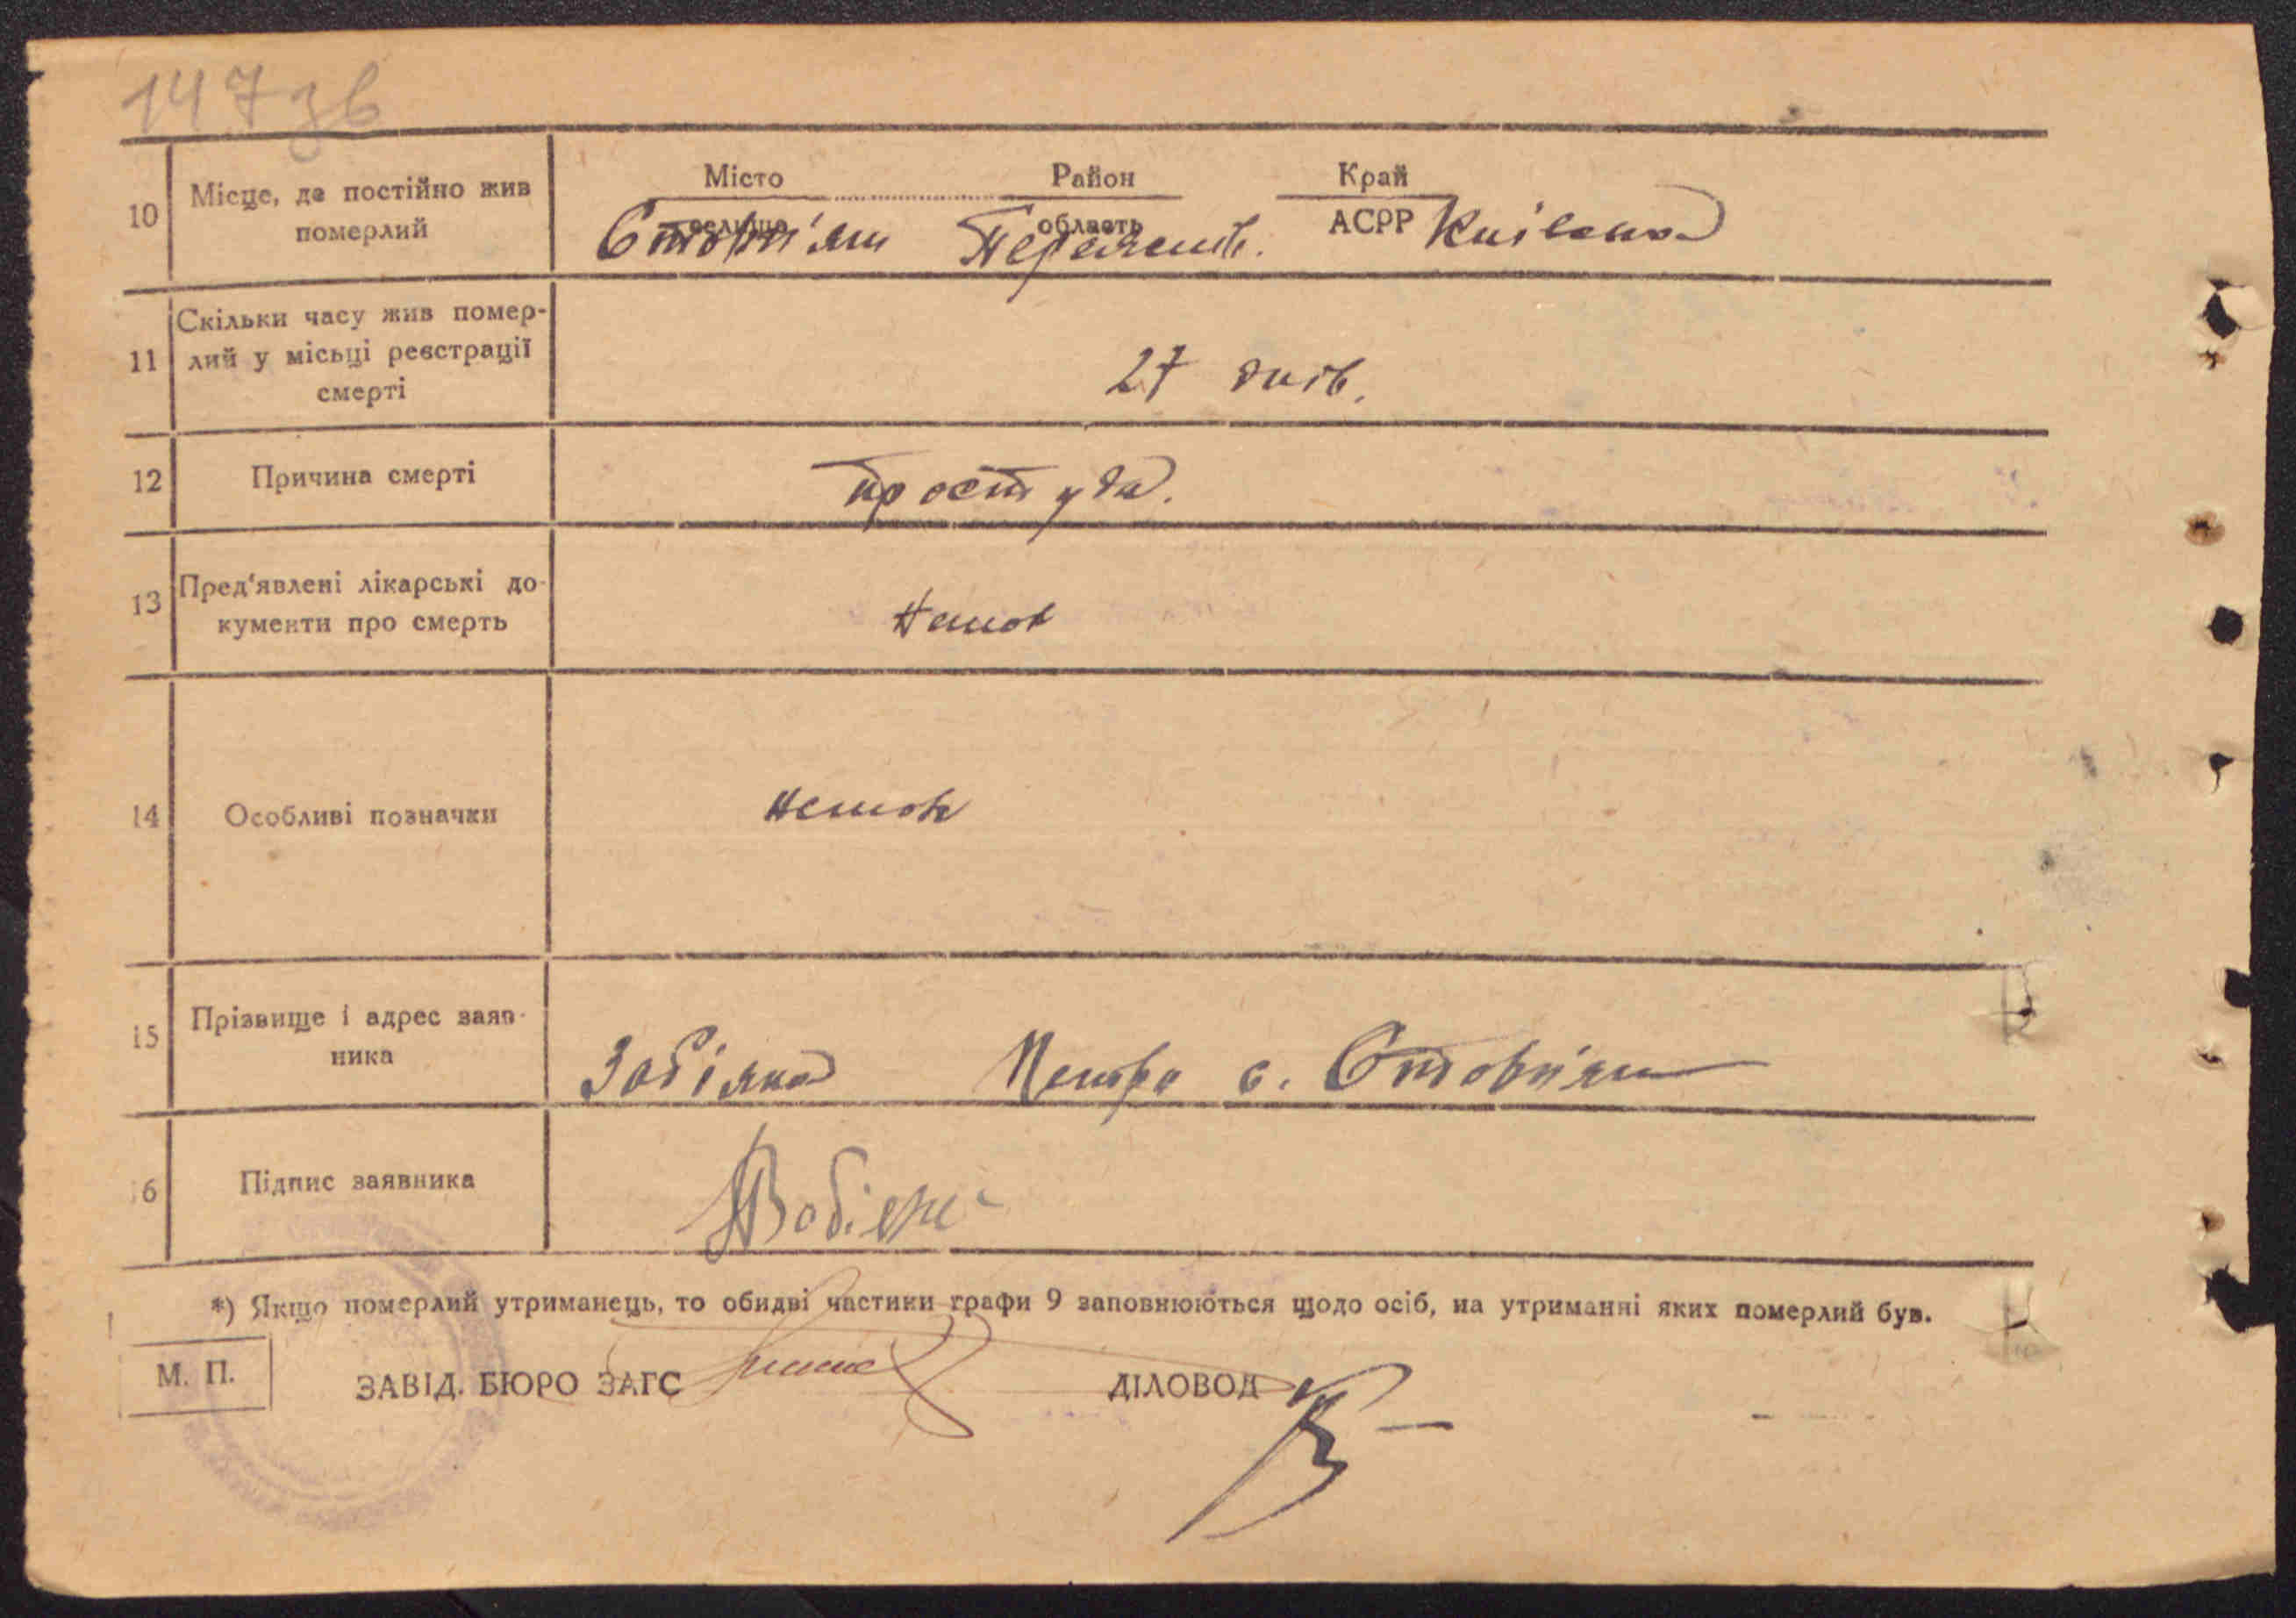 147зв
Місто Район Край
10 Місце, де постійно жив померлий
селище область АСРР
Стовп'яги Переяслів. Київська
11 Скільки часу жив помер-
лий у місьці реєстрації
смерті
27 днів.
12 Причина смерті простуда.
13 Пред'явлені лікарські до-
кументи про смерть
Немає
14 Особливі позначки немає
15 Прізвище і адрес заяв-
ника
Забіяка Петро с. Стовп'яги
16 Підпис заявника
*) Якщо померлий утриманець, то обидві частини графи 9 заповнюються щодо осіб, на утриманні яких померлий був.
М. П. ЗАВІД. БЮРО ЗАГС ДІЛОВОД